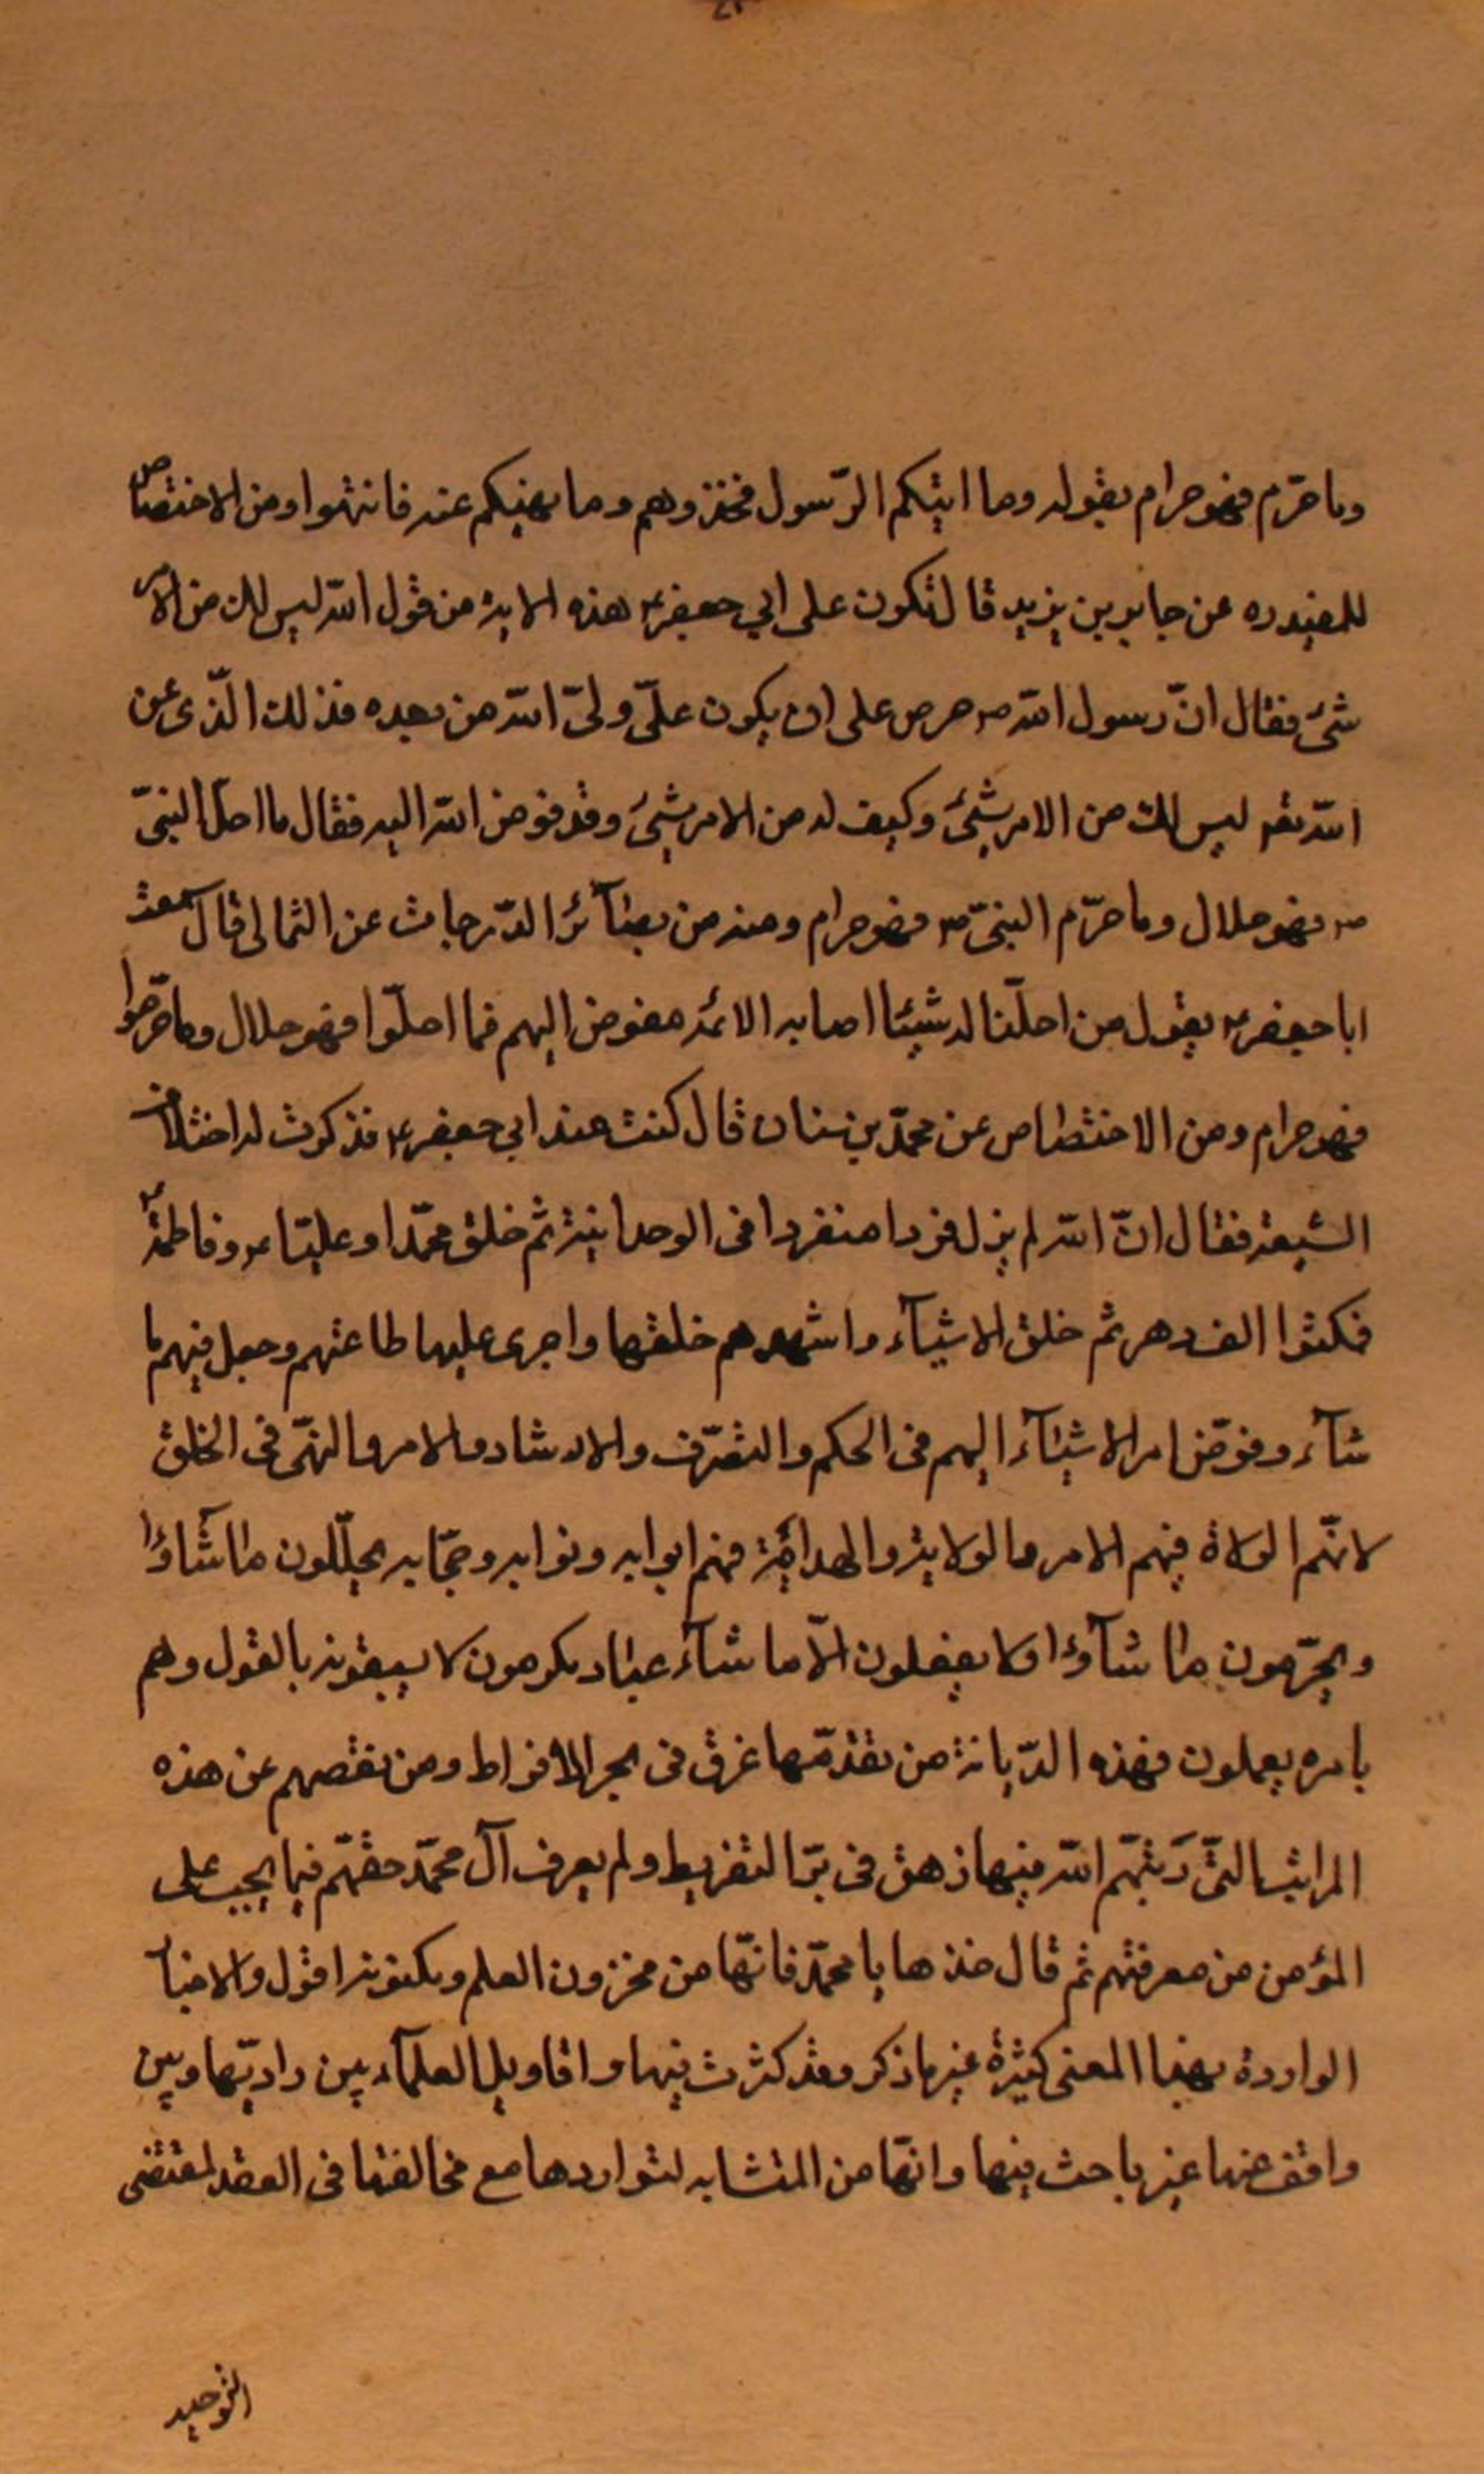 وما حرّم فهو حرام بقوله وما اتيكم الرّسول فخذوهم وما نهيكم عنه فانتهوا ومن الاختصاص
للمفيد ره عن جابر بن يزيد قال تكون على ابي جعفر ع هذه الاية من قول الله ليس لك من الامر
شئ فقال انّ رسول الله ص حرص على ان يكون علىّ ولىّ الله من بعده فذلك الّذى عن
الله تع ليس لك من الامر شئ وكيف له من الامر شئ وقد فوض الله اليه فقال ما احل النبىّ
ص فهو حلال وما حرّم النبىّ ص فهو حرام ومنه من بصآئر الدّرجات عن الثمالى قال سمعت
ابا جعفر ع يقول من احلّنا له شيئا اصابه الائمه مفوض اليهم فما احلّوا فهو حلال وما حرّموا
فهو حرام ومن الاختصاص عن محمّد بن سنان قال كنت عند ابي جعفر ع فذكرت له اختلاف
الشيعة فقال انّ الله لم يزل فردا منفردا فى الوحدانية ثم خلق محمّدا وعليّا ع وفاطمة ع
فمكثوا الف دهر ثم خلق الاشيآء واشهدهم خلقها واجرى عليها طاعتهم وجعل فيهم ما
شآء وفوّض امر الاشيآء اليهم فى الحكم والتصّرف والارشاد والامر والنهّى فى الخلق
لانّهم الولاة فيهم الامر والولاية والهداية فهم ابوابه ونوابه وحجّابه يحلّلون ما شآؤا
ويحرّمون ما شآؤا ولا يفعلون الّا ما شآء عباد مكرمون لا يسبقونه بالقول وهم
بامره يعملون فهذه الدّيانة من تقدّمها غرق فى بحر الافراط ومن نقصهم عن هذه
المراتب التّى رَتبّهم الله فيها زهق فى برّ التفريط ولم يعرف آل محمّد حقّهم فيما يجب على
المؤمن من معرفتهم ثم قال خذها يا محمّد فانّها من مخزون العلم ومكنونه اقول والاخبا
الواردة بهذا المعنى كثيرة غير ما ذكر وقد كثرت فيها واقاويل العلمآء بين رادّيها وبين
واقف عنها غير باحث فيها وانّها من المتشابه لتواردها مع مخالفتها فى العقد لمقتضى
التوحيد